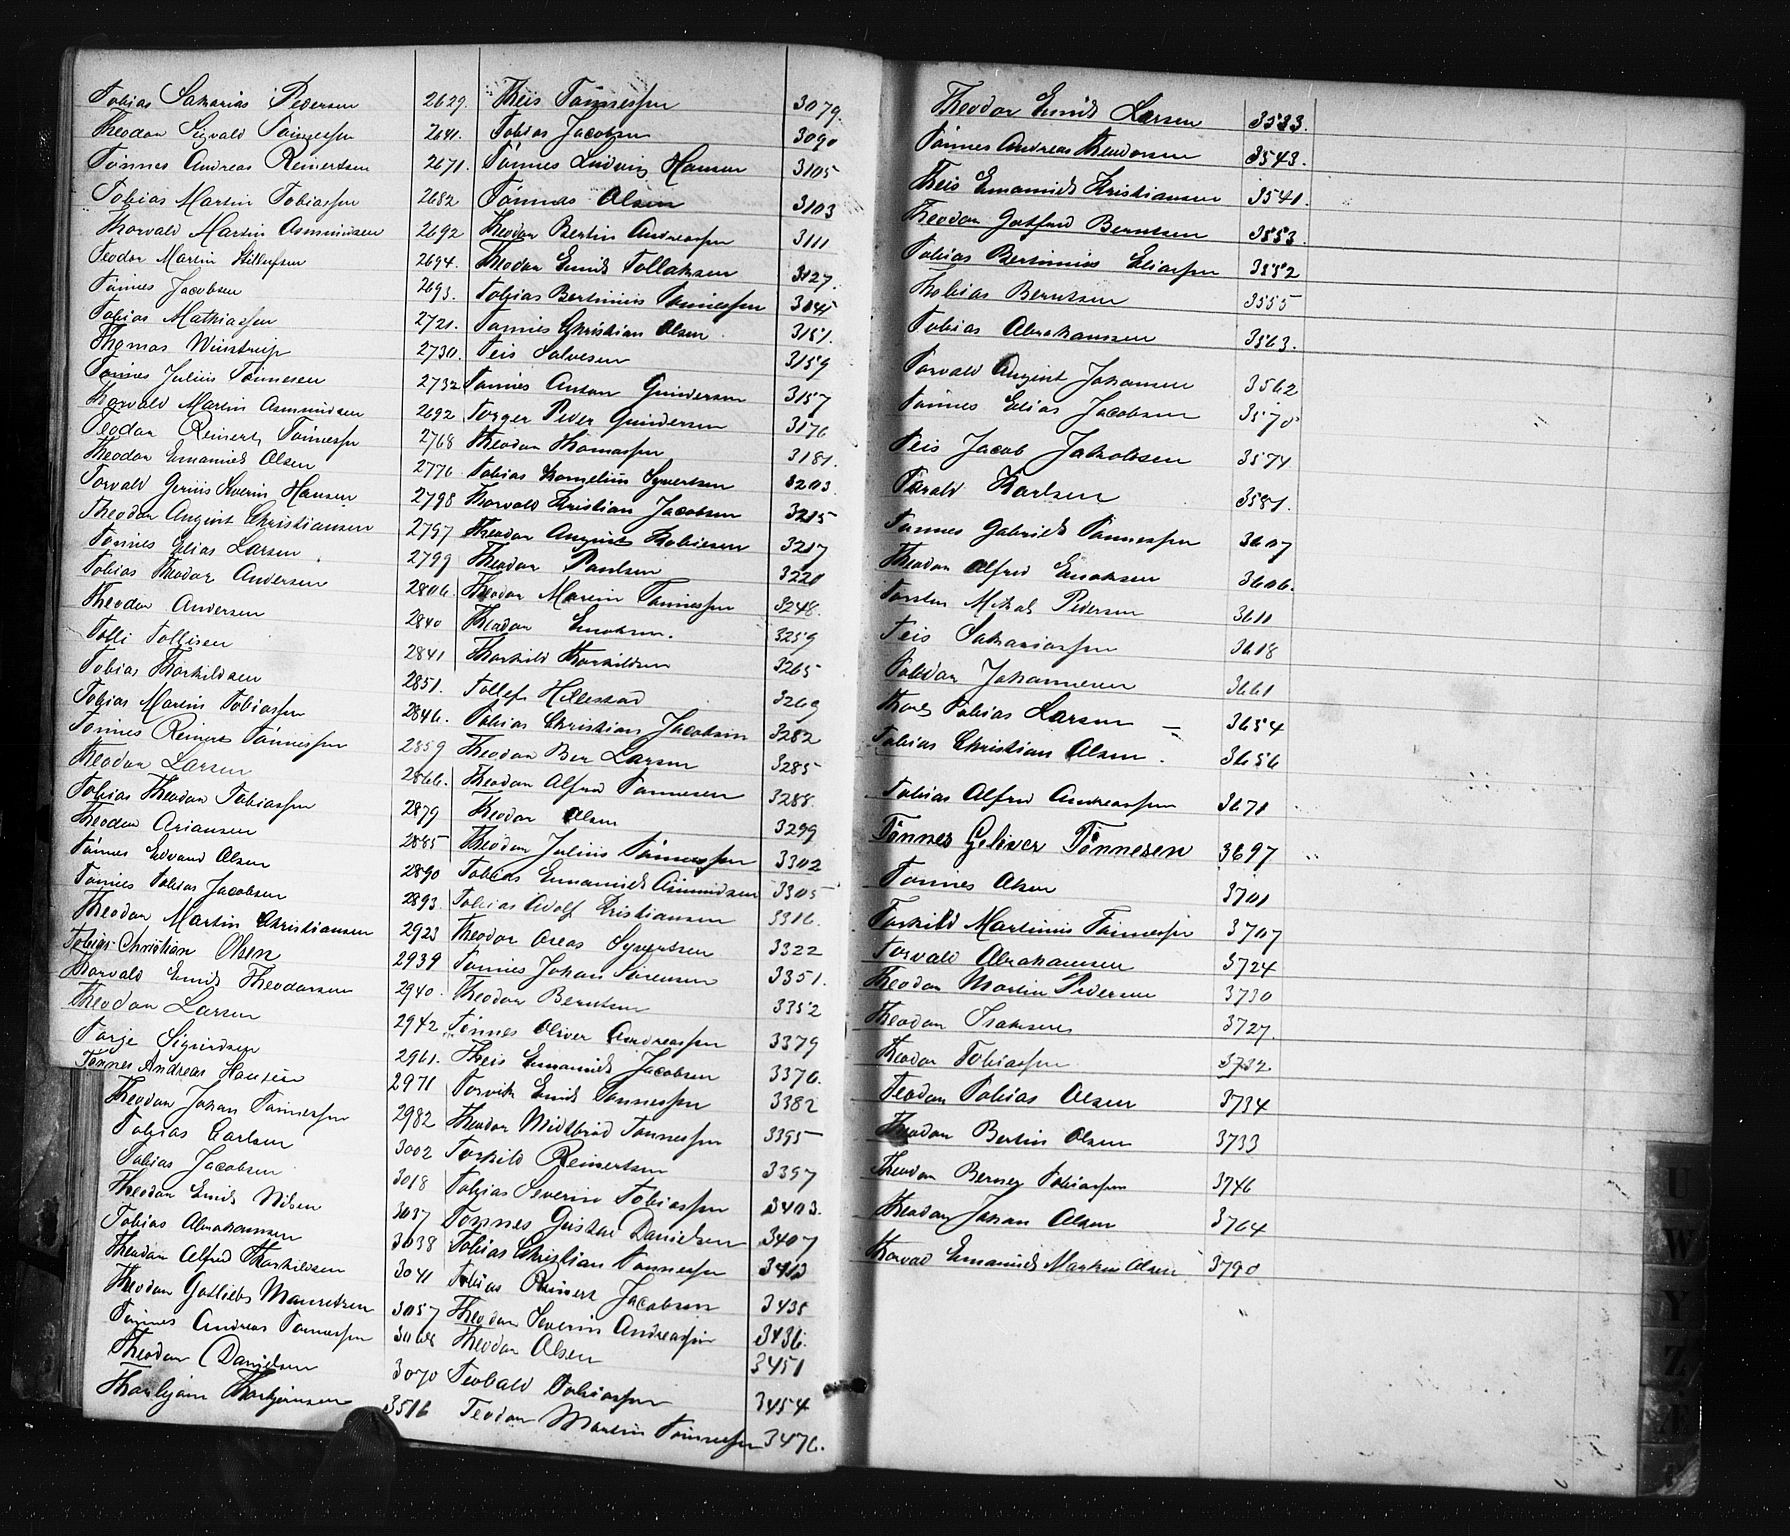 Tobias Sakarias Pedersen 2629.
Theodor Sigvald Tønnessen 2641.
Tønnes Andreas Reinertsen 2671.
Tobias Martin Tobiassen 2682
Thorvald Martin Asmundsen 2692
Teodor Martin 2694.
Tønnes Jacobsen 2693.
Tobias Mathiassen 2721.
Thomas 2730.
Tønnes Julius Tønnesen 2732
Thorvald Martin Asmundsen 2692
Teodor Reinert Tønnessen 2768
Theodor Emanuel Olsen 2776
Torvald Severin Hansen 2798
Theodor August Christiansen 2797
Tønnes Elias Larsen 2799
Tobias Theodor Andersen 2806
Theodor Andersen 2840
Tolli Tollisen 2841
Tobias Thorkildsen 2851.
Tobias Martin Tobiassen 2846.
Tønnes Reinert Tønnessen 2859
Theodor Larsen 2866.
Tobias Theodor Tobiassen 2879
Theodor Ariansen 2885
Tønnes Edvard Olsen 2890
Tønnes Tobias Jacobsen 2893.
Theodor Martin Christiansen 2923
Tobias Christian Olsen 2939
Thorvald Emil Theodorsen 2940.
Theodor Larsen 2942
Torje Sigurdsen 2961.
Tønnes Andreas Hansen 2971
Theodor Johan Tønnessen 2982
Tobias Carlsen 3002
Tobias Jacobsen 3018
Theodor Emil Nilsen 3037
Tobias Abrahamsen 3038
Theodor Alfred Thorkildsen 3041
Theodor Gotlieb Mauritzen 3057
Tønnes Andreas Tønnessen
Theodor Danielsen 3070
Thorbjørn Thorbjørnsen 3516
Theis Tønnessen 3079.
Tobias Jacobsen 3090
Tønnes Ludvig Hansen 3105
Tønnes Olsen 3103
Theodor Bertin Andreassen 3111
Theodor Emil Tollaksen 3127.
Tobias Bertinius Tønnessen 3145
Tønnes Christian Olsen. 3151.
Teis Salvesen 3159
Tønnes Anton Gundersen 3157
Torger Peder Gundersen 3176
Theodor Thomassen 3181.
Tobias Kornelius Syvertsen 3203.
Thorvald Kristian Jacobsen 3215
Theodor August Tobiesen 3217
Theodor Paulsen 3221
Theodor Martin Tønnessen 3248.
Theodor Enoksen. 3259
Thorkild Thorkildsen 3265
Tollef Hellestad 3269
Tobias Christian Jacobsen 3282
Theodor Ber Larsen 3285
Theodor Alfred Tønnesen 3288.
Theodor Olsen 3299
Theodor Julius Tønnessen 3302
Tobias Emanuel Asmundsen 3305
Tobias Adolf Kristiansen 3316.
Theodor Oreas Syvertsen 3322
Tønnes Johan Sørensen 3351.
Theodor Berntsen 3352
Tønnes Oliver Andreassen 3379
Theis Emanuel Jacobsen 3376.
Torvik Emil Tønnessen 3382
Theodor Midtbrød Tønnessen 3395
Torkild Reinertsen 3397
Tobias Severin Tobiassen 3403.
Tønnes Gustav Danielsen 3407
Tobias Christian Tønnessen 3413
Tobias Reinert Jacobsen 3435
Theodor Severin Andreassen 3436.
Theodor Olsen 3451
Teobald Tobiassen 3454
Teodor Martin Tønnessen 3476.
Theodor Emil Larsen 3533.
Tønnes Andreas Theodorsen 3543.
Theis Emanuel Kristiansen 3541.
Theodor Gotfred Berntsen 3553.
Tobias Bertinius Eliassen 3552
Thobias Berntsen 3555
Tobias Abrahamsen 3563.
Torvald August Johansen 3562
Tønnes Elias Jacobsen 3570
Teis Jacob Jakobsen 3574
Tarald Karlsen 3581.
Tønnes Gabriel Tønnessen 3607
Theodor Alfred Enoksen 3606.
Torsten Mikal Pedersen 3611
Teis Sakariassen 3618
Teodor Johannesen 3661
Tobias Larsen — 3654
Tobias Christian Olsen. 3656
Tobias Alfred Andreassen 3671
Tønnes Geliver Tønnesen 3697
Tønnes Olsen 3701
Torkild Martinius Tønnessen 3707
Torvald Abrahamsen 3724
Theodor Martin Pedersen 3730
Theodor Isaksen 3727.
Theodor Tobiassen 3732.
Teodor Tobias Olsen 3734
Theodor Bertin Olsen 3733
Theodor Berner Tobiassen 3746
Theodor Johan Olsen 3764
Thorvald Emanuel Martin Olsen 3790
U
W
Y
Z
Æ